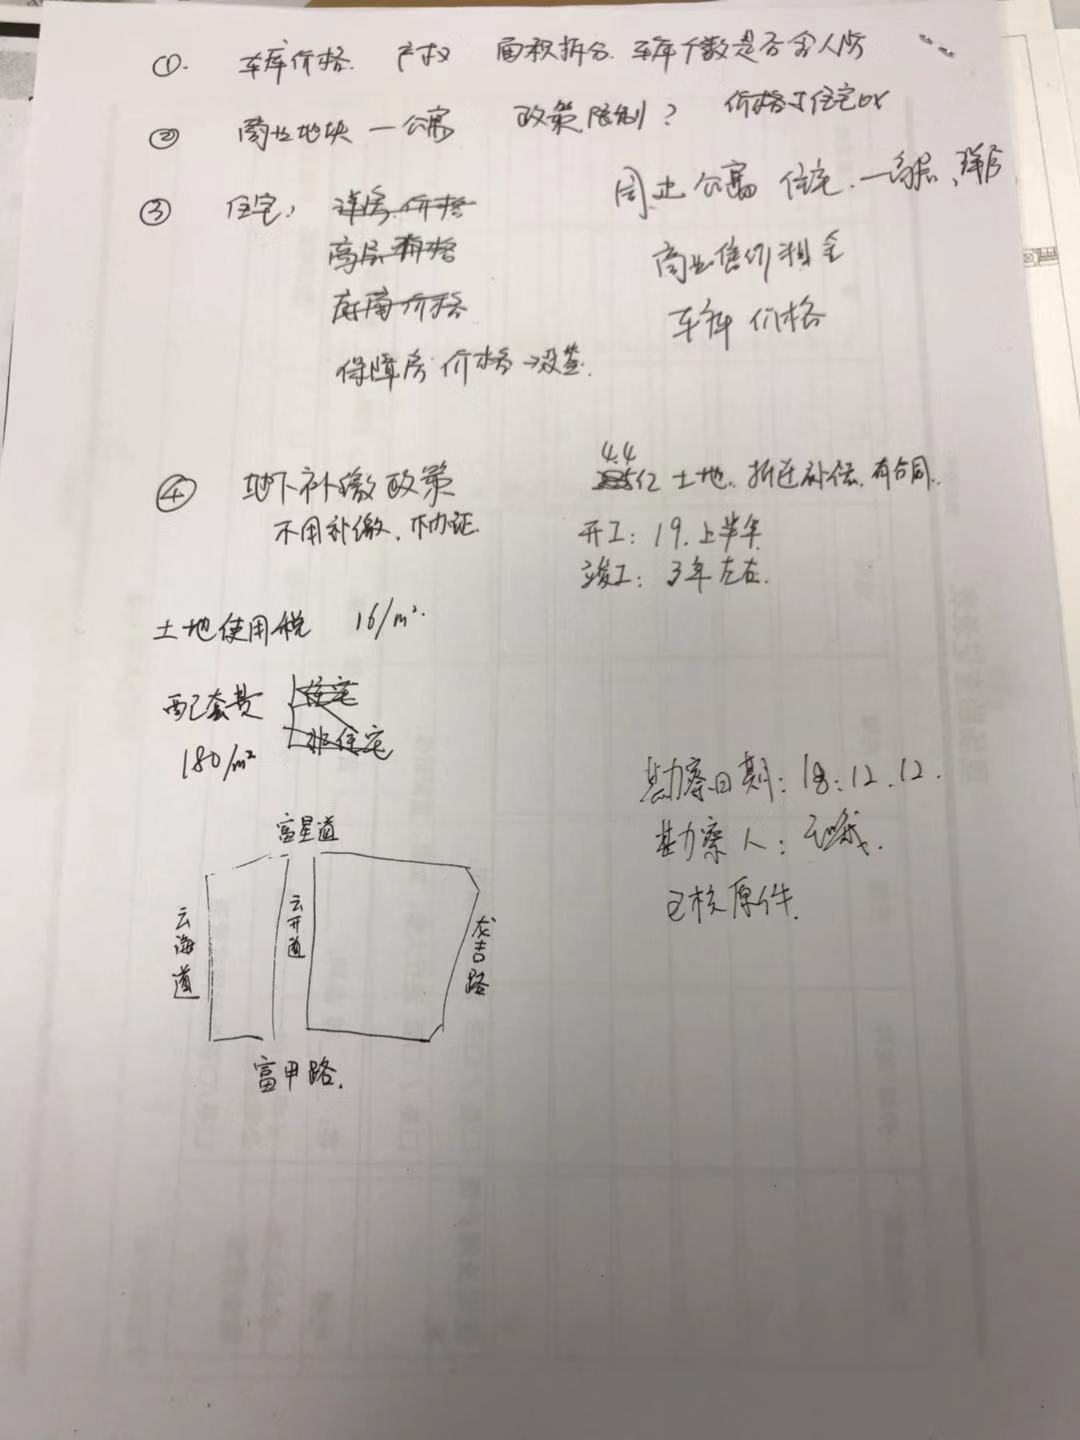 ①. 车库价格. 产权 面积拆分. 车库个数是否含人防
② 商业地块 — 公寓 政策限制? 价格于住宅
周边 公寓 住宅. —高层、洋房
③ 住宅: 洋房价格
高层价格
价格
商业售价租金
车库价格
保障房价格→没签.
4.4
亿 土地. 拆迁补偿. 有合同.
④ 地下补缴政策
不用补缴. 不办证.
开工: 19. 上半年
竣工: 3年左右.
土地使用税 16/m².
配套费 住宅
非住宅
180/m²
勘察日期: 18.12.12.
勘察人:
已核原件.
富星道
云海道
云开道
龙吉路
富甲路.